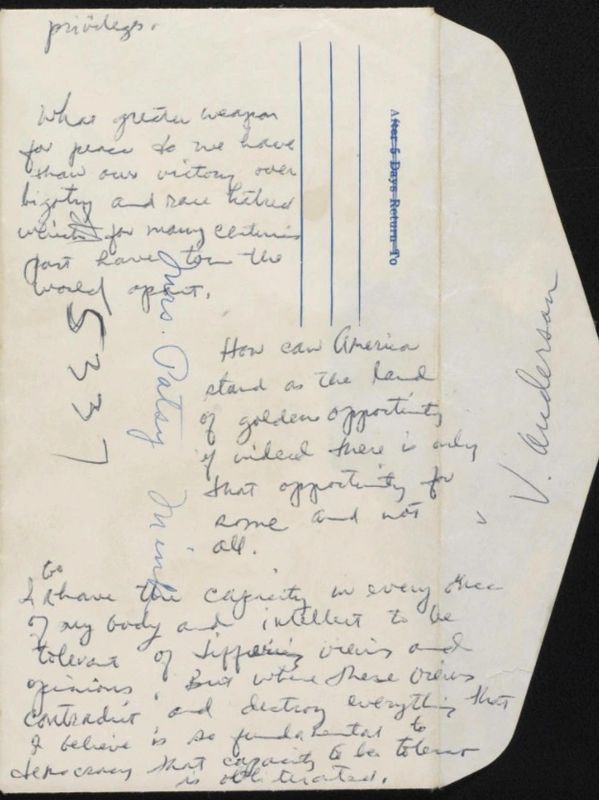 privileges.
What greater weapon
for peace do we have
than our victory over
bigotry and race hatred
which for many centuries
past have torn the
world apart.
After 5 Days Return To
5337
Mrs. Patsy Mink
How can America
stand as the land
of golden opportunity
if indeed there is only
that opportunity for
some and not
all.
V. Anderson
to
I have the capacity in every
of my body and intellect to be
tolerant of differing views and
opinions. But where these views
contradict and destroy everything that
I believe is so fundamental to
democracy that capacity to be tolerant
is obliterated.